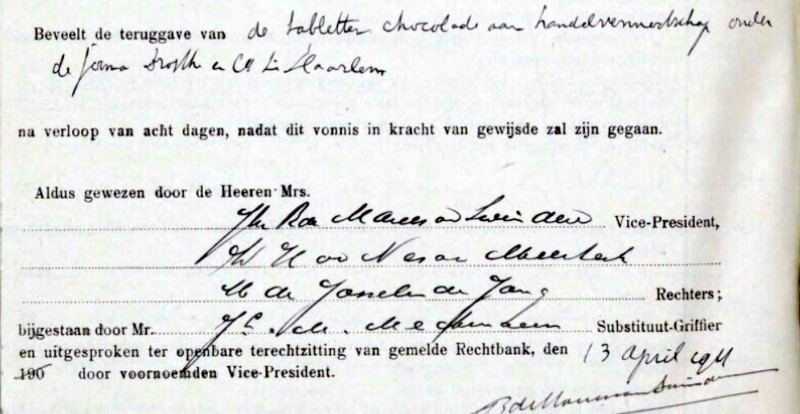 Beveelt de teruggave van de tabletten chocolade aan handelvennootschap onder
de firma Droste en Co te Haarlem
na verloop van acht dagen, nadat dit vonnis in kracht van gewijsde zal zijn gegaan.
Aldus gewezen door de Heeren Mrs.
de Marees van Swinderen Vice-President,
van Nes van Meerkerk
de Josselin de Jong Rechters;
bijgestaan door Mr. Substituut-Griffier
en uitgesproken ter openbare terechtzitting van gemelde Rechtbank, den 13 April 1911
190 door voornoemden Vice-President.